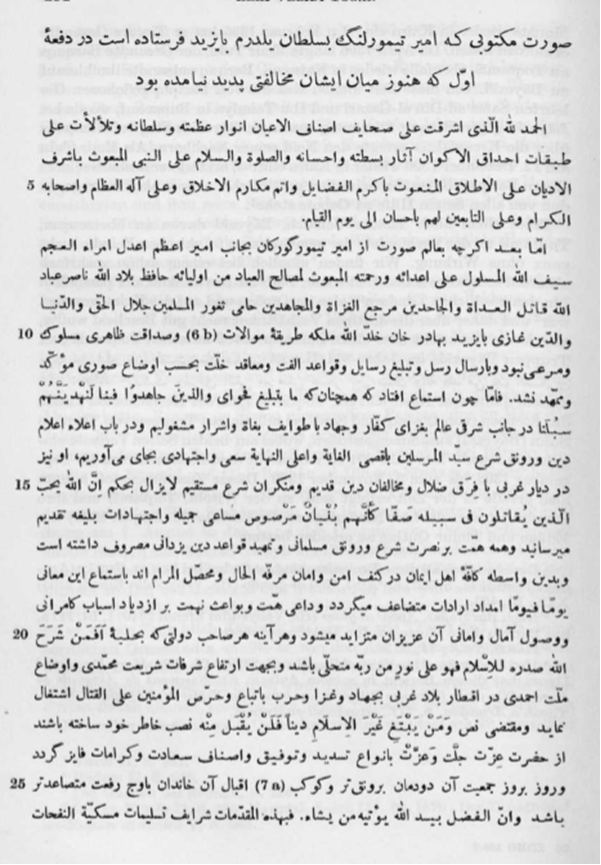 صورت مکتوبی که امیر تیمورلنگ بسلطان یلدرم بایزید فرستاده است در دفعهٔ
اوّل که هنوز میان ایشان مخالفتی پدید نیامده بود
الحمد لله الّذی اشرقت علی صحایف اصناف الاعیان انوار عظمته وسلطانه وتلألأت علی
طبقات احداق الاکوان آثار بسطته واحسانه والصلوة والسلام علی النبی المبعوث باشرف
الادیان علی الاطلاق المنعوت باکرم الفضایل واتم مکارم الاخلاق وعلی آله العظام واصحابه 5
الکرام وعلی التابعین لهم باحسان الی یوم القیام.
امّا بعد اکرچه بعالم صورت از امیر تیمورکورکان بجانب امیر اعظم اعدل امراء العجم
سیف الله المسلول علی اعدائه ورحمته المبعوث لمصالح العباد من اولیائه حافظ بلاد الله ناصر عباد
الله قاتل العداة والجاحدین مرجع الغزاة والمجاهدین حامی ثغور المسلمین جلال الحقّ والدّنیا
والدّین غازی بایزید بهادر خان خلّد الله ملکه طریقهٔ موالات (6 b) وصداقت ظاهری مسلوك 10
ومرعی نبود وبارسال رسل وتبلیغ رسایل وقواعد الفت ومعاقد خلّت بحسب اوضاع صوری مؤکّد
وممهّد نشد. فامّا چون استماع افتاد که همچنان‌که ما بتبلیغ فحوای والذین جاهدوا فینا لَنهْدِیَنَّهُمْ
سُبُلَنا در جانب شرق عالم بغزای کفّار وجهاد با طوایف بغاة واشرار مشغولیم ودر باب اعلاء اعلام
دین ورونق شرع سید المرسلین باقصی الغایة واعلی النهایة سعی واجتهادی بجای می‌آوریم، او نیز
در دیار غربی با فِرَق ضلال ومخالفان دین قدیم ومنکران شرع مستقیم لایزال بحکم انَّ الله یحبّ 15
الّذین یُقاتلون فی سبیله صَفّا کَأنَّهم بُنْیانٌ مَرْصوص مساعی جمیله واجتهادات بلیغه تقدیم
میرساند وهمه همّت بر نصرت شرع ورونق مسلمانی وتمهید قواعد دین یزدانی مصروف داشته است
وبدین واسطه کافّهٔ اهل ایمان در کنف امن وامان مرفّه الحال ومحصّل المرام اند باستماع این معانی
یومًا فیومًا امداد ارادات متضاعف میگردد وداعی همّت وبواعث نهمت بر ازدیاد اسباب کامرانی
ووصول آمال وامانی آن عزیزان متزاید میشود وهر آینه هر صاحب دولتی که بحلیهٔ اَفَمَنْ شَرَحَ 20
الله صدره للاسّلام فهو علی نورٍ من ربّه متحلّی باشد وبجهت ارتفاع شرفات شریعت محمّدی واوضاع
ملّت احمدی در اقطار بلاد غربی بجهاد وغزا وحرب باتباع وحرّص المؤمنین علی القتال اشتغال
نماید ومقتضی نص وَمَنْ یَبْتَغِ غَیْرَ الإسلامِ دیناً فَلَنْ یُقْبَل مِنْه نصب خاطر خود ساخته باشند
از حضرت عِزّت جلّتْ وَعَزَّتْ بانواع تسدید وتوفیق واصناف سعادت وکرامات فایز گردد
وروز بروز جمعیت آن دودمان برونق‌تر وکوکب (7 a) اقبال آن خاندان باوج رفعت متصاعدتر 25
باشد وانّ الفضل بید الله یؤتیه من یشاء. فبهذه المقدّمات شرایف تسلیمات مسکیّة النفحات